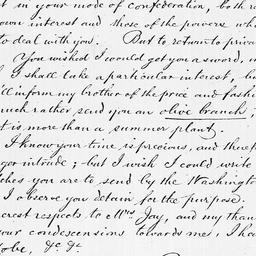 t in your mode of confederation, both
own interest and those of the powers
to deal with you. But to return to
You wished I would get you a sword,
I shall take a particular interest,
inform my brother of the price and
much rather send you an olive branch;
it is more than a summer plant.
I know your time is precious, and
intrude; but I wish I could write
ches you are to send by the Washington
I observe you detain for the purpose.
respects to Mrs Jay, and my
your condescensions towards me, I
&c. &c.